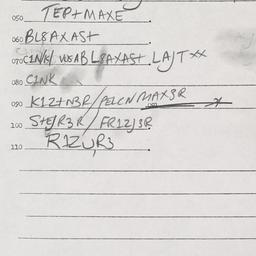 050 TEP+MAXE
060 BL8AXAS+
070 C1NK/ WSABL8AXAS+ LAJT××
080 C1NK
090 K1Z+N3R/PELCNMAX3R
100 S+EJR3R/FR1ZJ3R
110 R1ZUR3